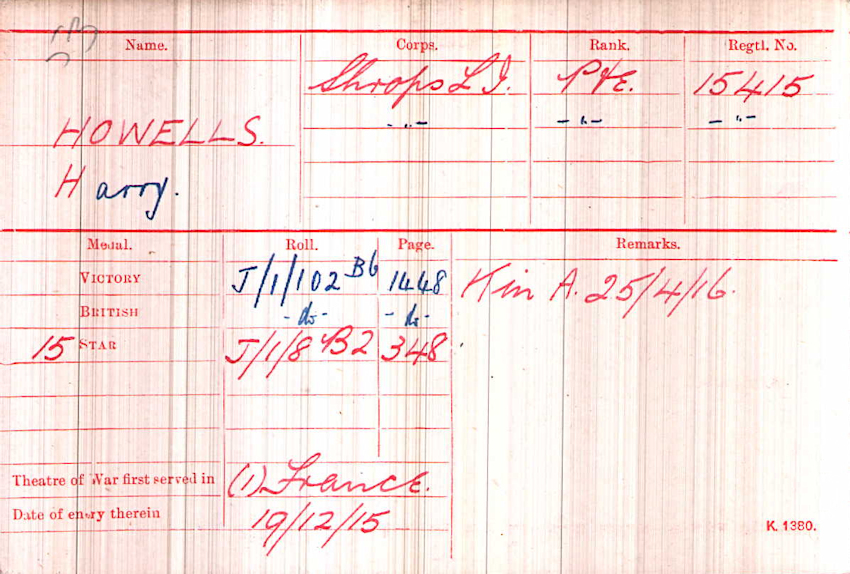 Name. Corps. Rank. Regtl. No.
Shrops L I. Pte. 15415
HOWELLS. - " - - " - - " -
Harry.
Medal. Roll. Page. Remarks.
VICTORY J/1/102 B6 1448 K in A. 25/4/16.
BRITISH - do - - do -
15 STAR J/1/8 B2 348
Theatre of War first served in (1) France.
Date of entry therein 19/12/15
K. 1380.